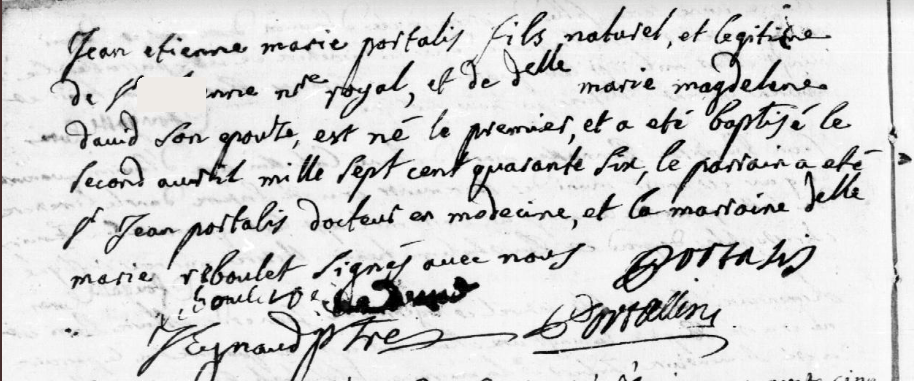 Jean etienne marie portalis fils naturel, et legitime
de Sr enne nre royal, et de delle marie magdeleine
david son epouse, est né le premier, et a eté baptisé le
second avril mille sept cent quarante six, le parrain a eté
Sr Jean portalis docteur en medecine, et la marraine delle
marie reboulet signés avec nous Portalis
Portallis
Reynaud ptre